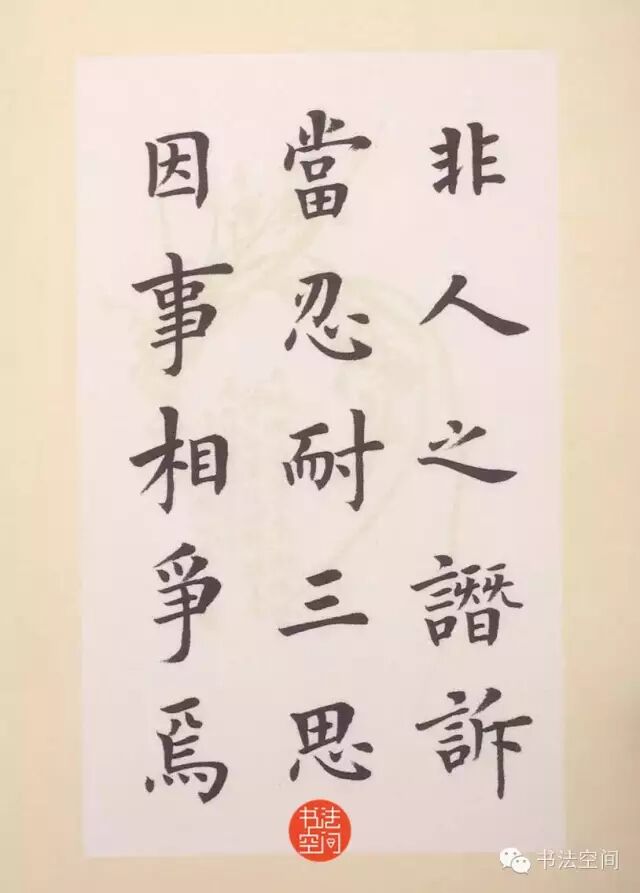 非人之譖訴
當忍耐三思
因事相爭焉
书法空间
书法空间